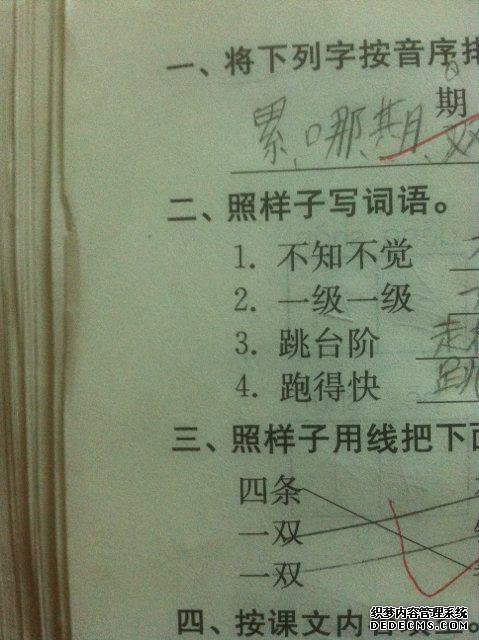 一、将下列字按音序排
期
累、哪、期、双
二、照样子写词语。
1. 不知不觉
2. 一级一级
3. 跳台阶 走
4. 跑得快 跳
三、照样子用线把下面
四条
一双
一双
四、按课文内容
织梦内容管理系统
DEDECMS.COM